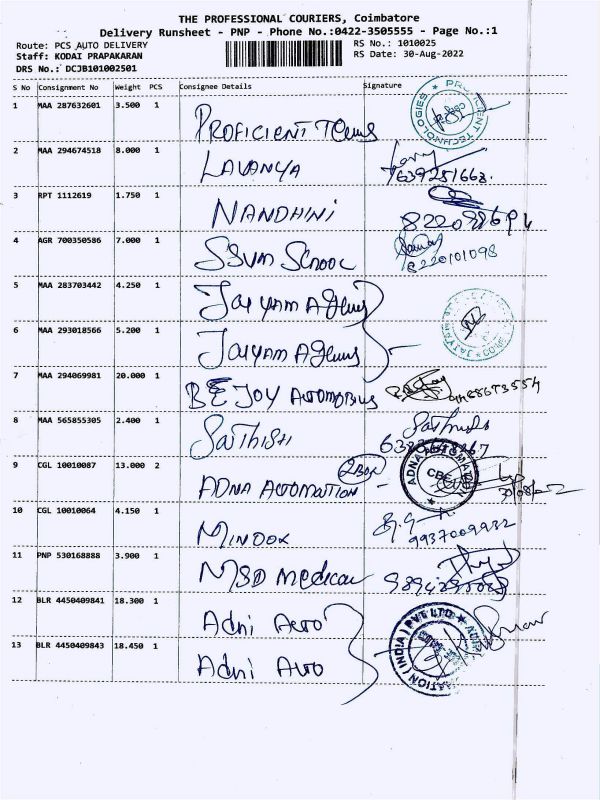 THE PROFESSIONAL COURIERS, Coimbatore
Delivery Runsheet - PNP - Phone No.:0422-3505555 - Page No.:1
Route: PCS AUTO DELIVERY
RS No.: 1010025
Staff: KODAI PRAPAKARAN
RS Date: 30-Aug-2022
DRS No.: DCJB101002501
S No Consignment No Weight PCS Consignee Details Signature
1 MAA 287632601 3.500 1 PROFICIENT
PROFICIENT TECHNOLOGIES
2 MAA 294674518 8.000 1 LAVANYA
639251663.
3 RPT 1112619 1.750 1 NANDHINI
4 AGR 700350586 7.000 1 SSVM SCHOOL
8220101098
5 MAA 283703442 4.250 1 JAIYAM AGENS
6 MAA 293018566 5.200 1 JAIYAM AGENS
7 MAA 294069981 20.000 1 BE JOY AUTOMOBILES
8 MAA 565855305 2.400 1 SATHISH
9 CGL 10010087 13.000 2 ADNA AUTOMATION 2 BOX
ADNA AUTOMATION
CBE
10 CGL 10010064 4.150 1
9937009932
11 PNP 530168888 3.900 1 MSD MEDICAL
12 BLR 4450409841 18.300 1 Adni Auto
13 BLR 4450409843 18.450 1 Adni Auto
(INDIA) PVT LTD